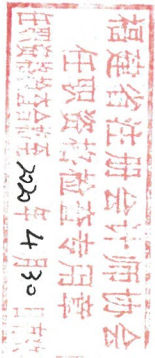 福建省注册会计师协会
任职资格检查专用章
任职资格检查 至 2020年4月30日